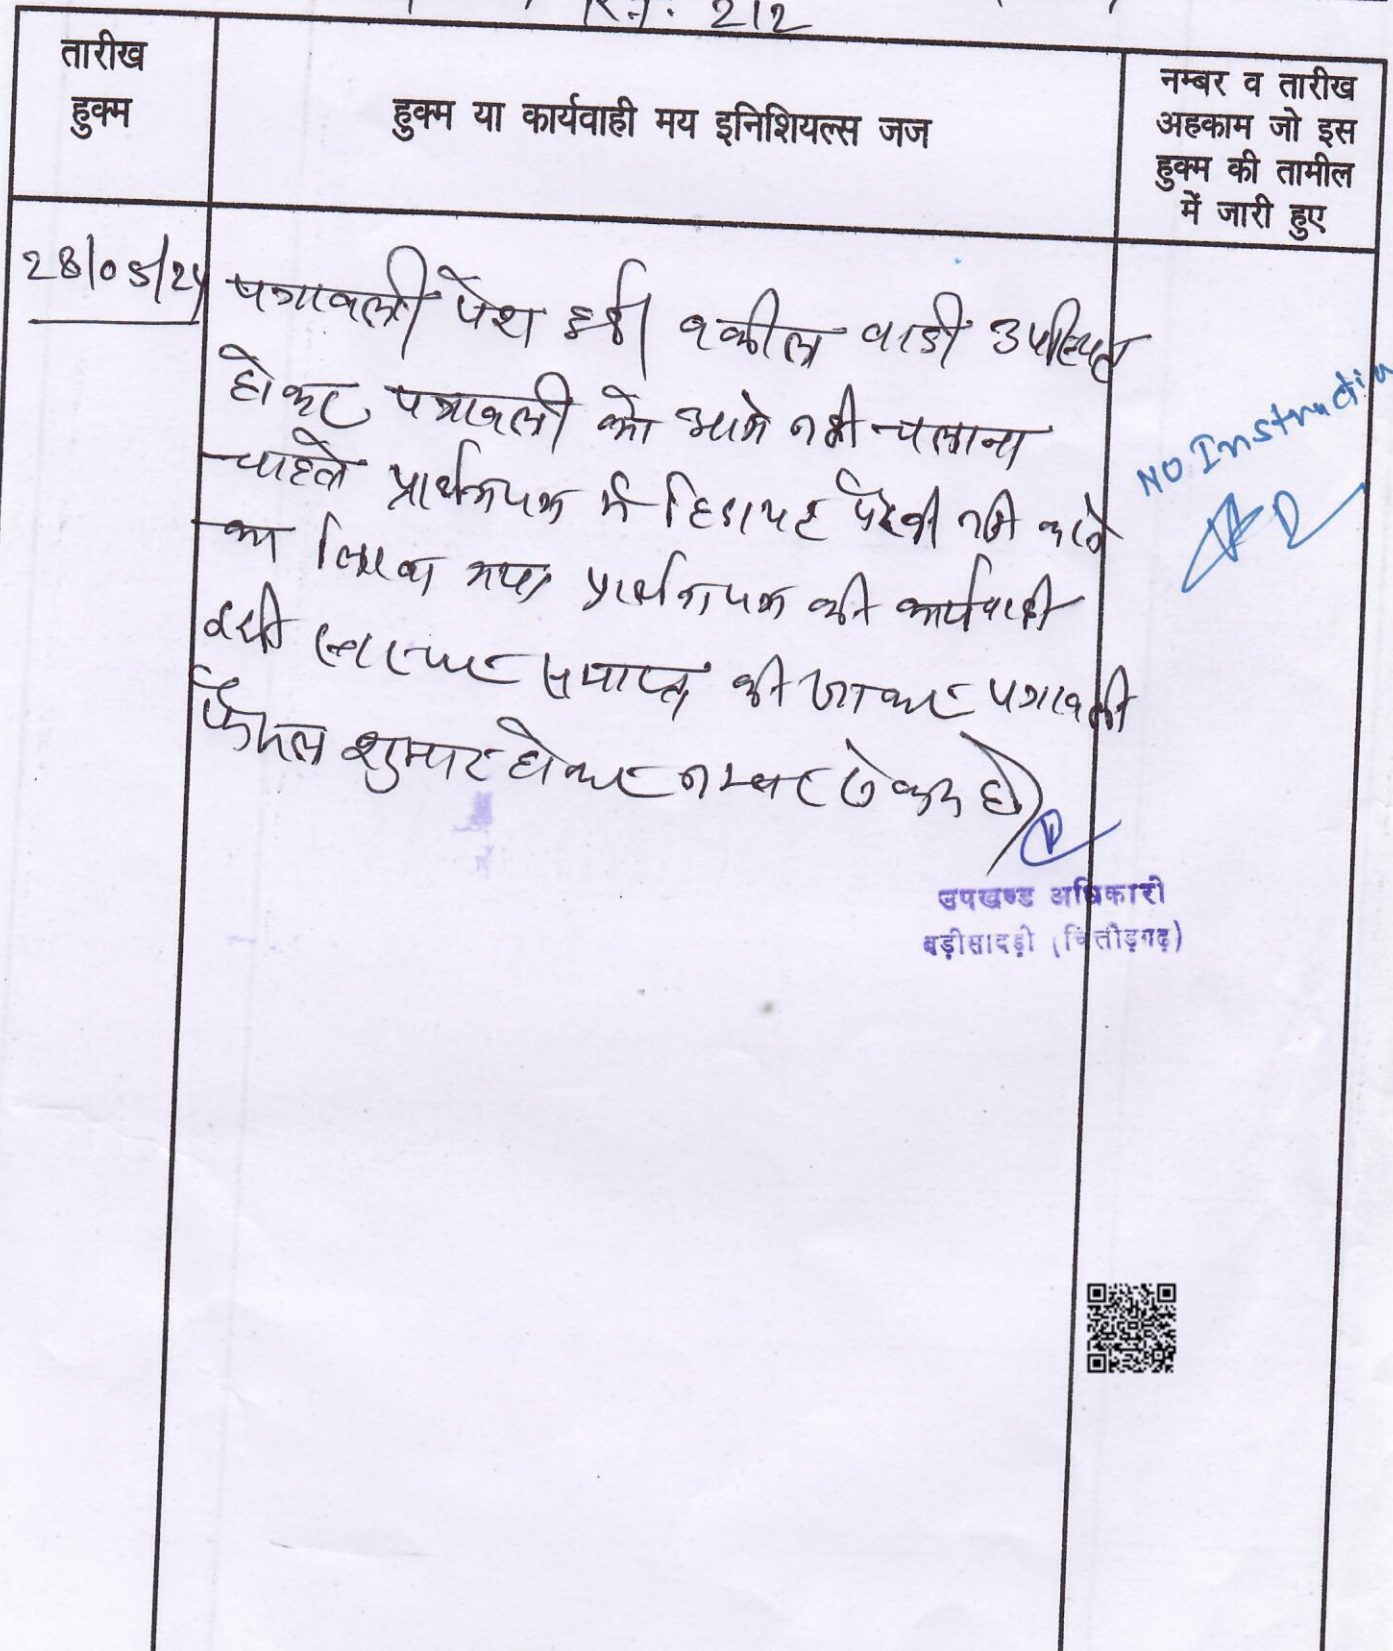 212
तारीख
हुक्म
हुक्म या कार्यवाही मय इनिशियल्स जज
नम्बर व तारीख
अहकाम जो इस
हुक्म की तामील
में जारी हुए
28/05/24
पत्रावली पेश हुई। वकील वादी उपस्थित
होकर पत्रावली को आगे नही चलाना
चाहते प्रार्थनापत्र में हिदायह पैरवी नही करने
का किया गया प्रार्थनापत्र की कार्यवाही
इसी स्तर पर समाप्त की जाकर पत्रावली
फैसल शुमार होकर नम्बर से कम हो।
No Instruction
उपखण्ड अधिकारी
बड़ीसादड़ी (चित्तौड़गढ़)